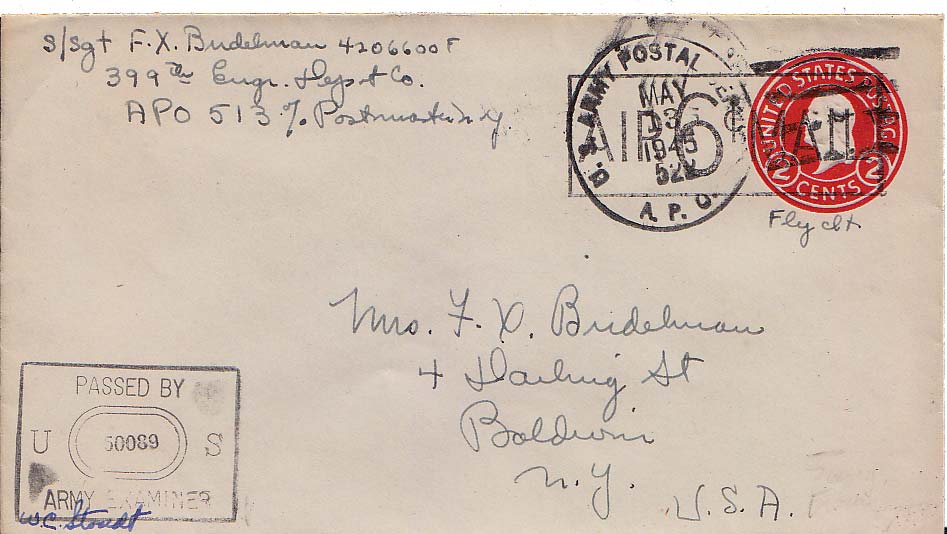 S/Sgt F.X. Budelman 4206600F
399th Engr. Depot Co.
APO 513 % Postmaster n.y.
U.S. ARMY POSTAL
MAY
13
1945
522
A.P.O.
AIR 6¢ MAIL
UNITED STATES POSTAGE
2 2
CENTS
Fly
Mrs. F. X. Budelman
4 St
Baldwin
n.y.
U.S.A.
PASSED BY
U 50089 S
ARMY EXAMINER
W.C. Stoudt